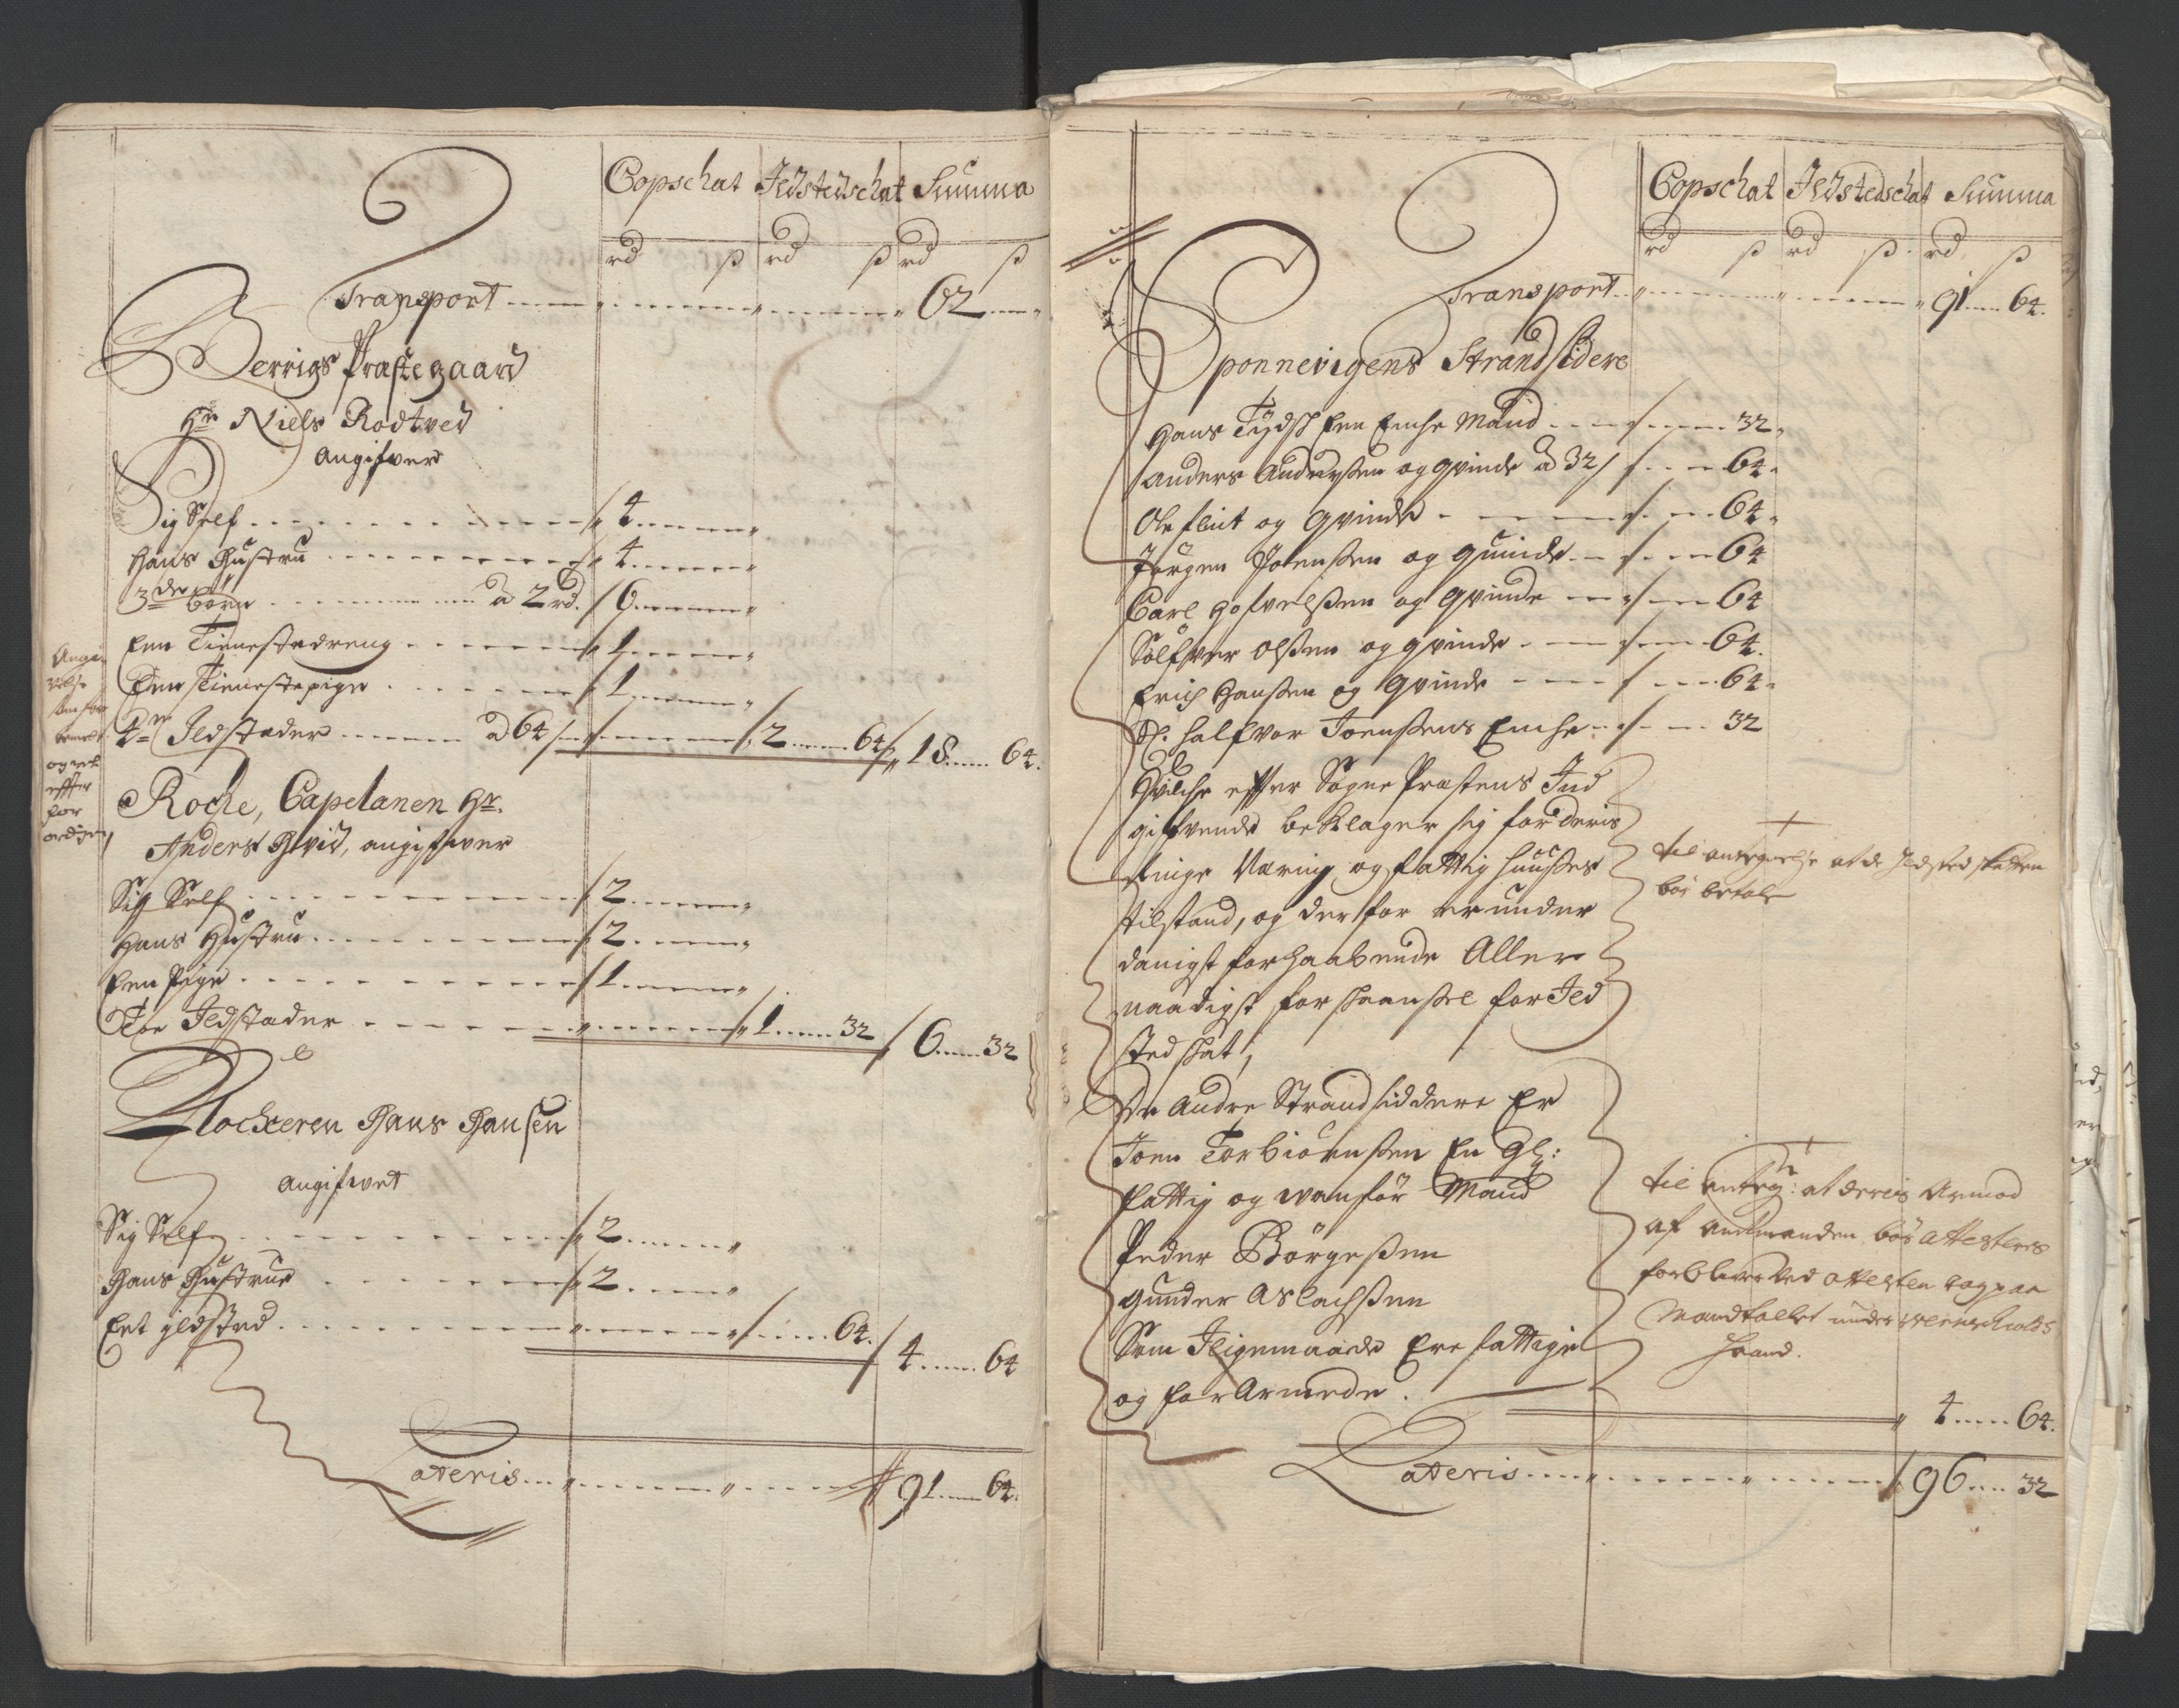 Copschat Ildstedschat Summa
rd ß rd ß rd ß
Transport 62
Berrigs Præstegaard
Hr Niels Rodtved
Angifver
Sig Self 4
Hans Hustru 4
3de Börn à 2 rd. 6
Een Tienestedreng 1
Een Tienestepige 1
4re Ildstæder à 64 ß 2 64 18 64.
Roche, Capelanen Hr.
Anders Hvid, angifver
Sig Self 2
Hans Hustru 2
Een Pige 1
Toe Ildstæder 1 32 6 32
Klocheren Hans Hansen
Angifvet
Sig Self 2
Hans Hustrue 2
Eet ildsted 64. 4 64
Lateris 91 64.
Copschat Ildstedschat Summa
rd ß rd ß rd ß
Transport 91 64.
Sponnevigens Strandsidere
Hans Tydsk Een Enche Mand 32
Anders Andersen og Qvinde à 32 ß 64
Ole flint og Qvinde 64
Jörgen Joensen og Quinde 64
Carl og Qvinde 64
Sölfver Olsen og Qvinde 64.
Erich Hansen og Qvinde 64
Sl. Halfvor Joensens Enche 32
Hvilche efter Sogne Præstens Ind
gifvende beklager sig for deris
ringe Næring og fattig Huuses
tilstand, og der for er under
danigst forhaabende Aller
naadigst forskaansel for Ild
sted skat;
til antegnelse at de Ildsted skatten
bör betale
De Andre Strandsiddere Er
Joen Torbiörnsen En Gl:
fattig og wanför Mand
Peder Börgesen
Gunder Aslachsen
Som Iligemaade Ere fattige
og forArmede.
til anteg: at dereis Armod
af andmanden bör attesteres
forbliver ved attesten bag paa
Mandtallet under
Haand.
4 64.
Lateris 96 32